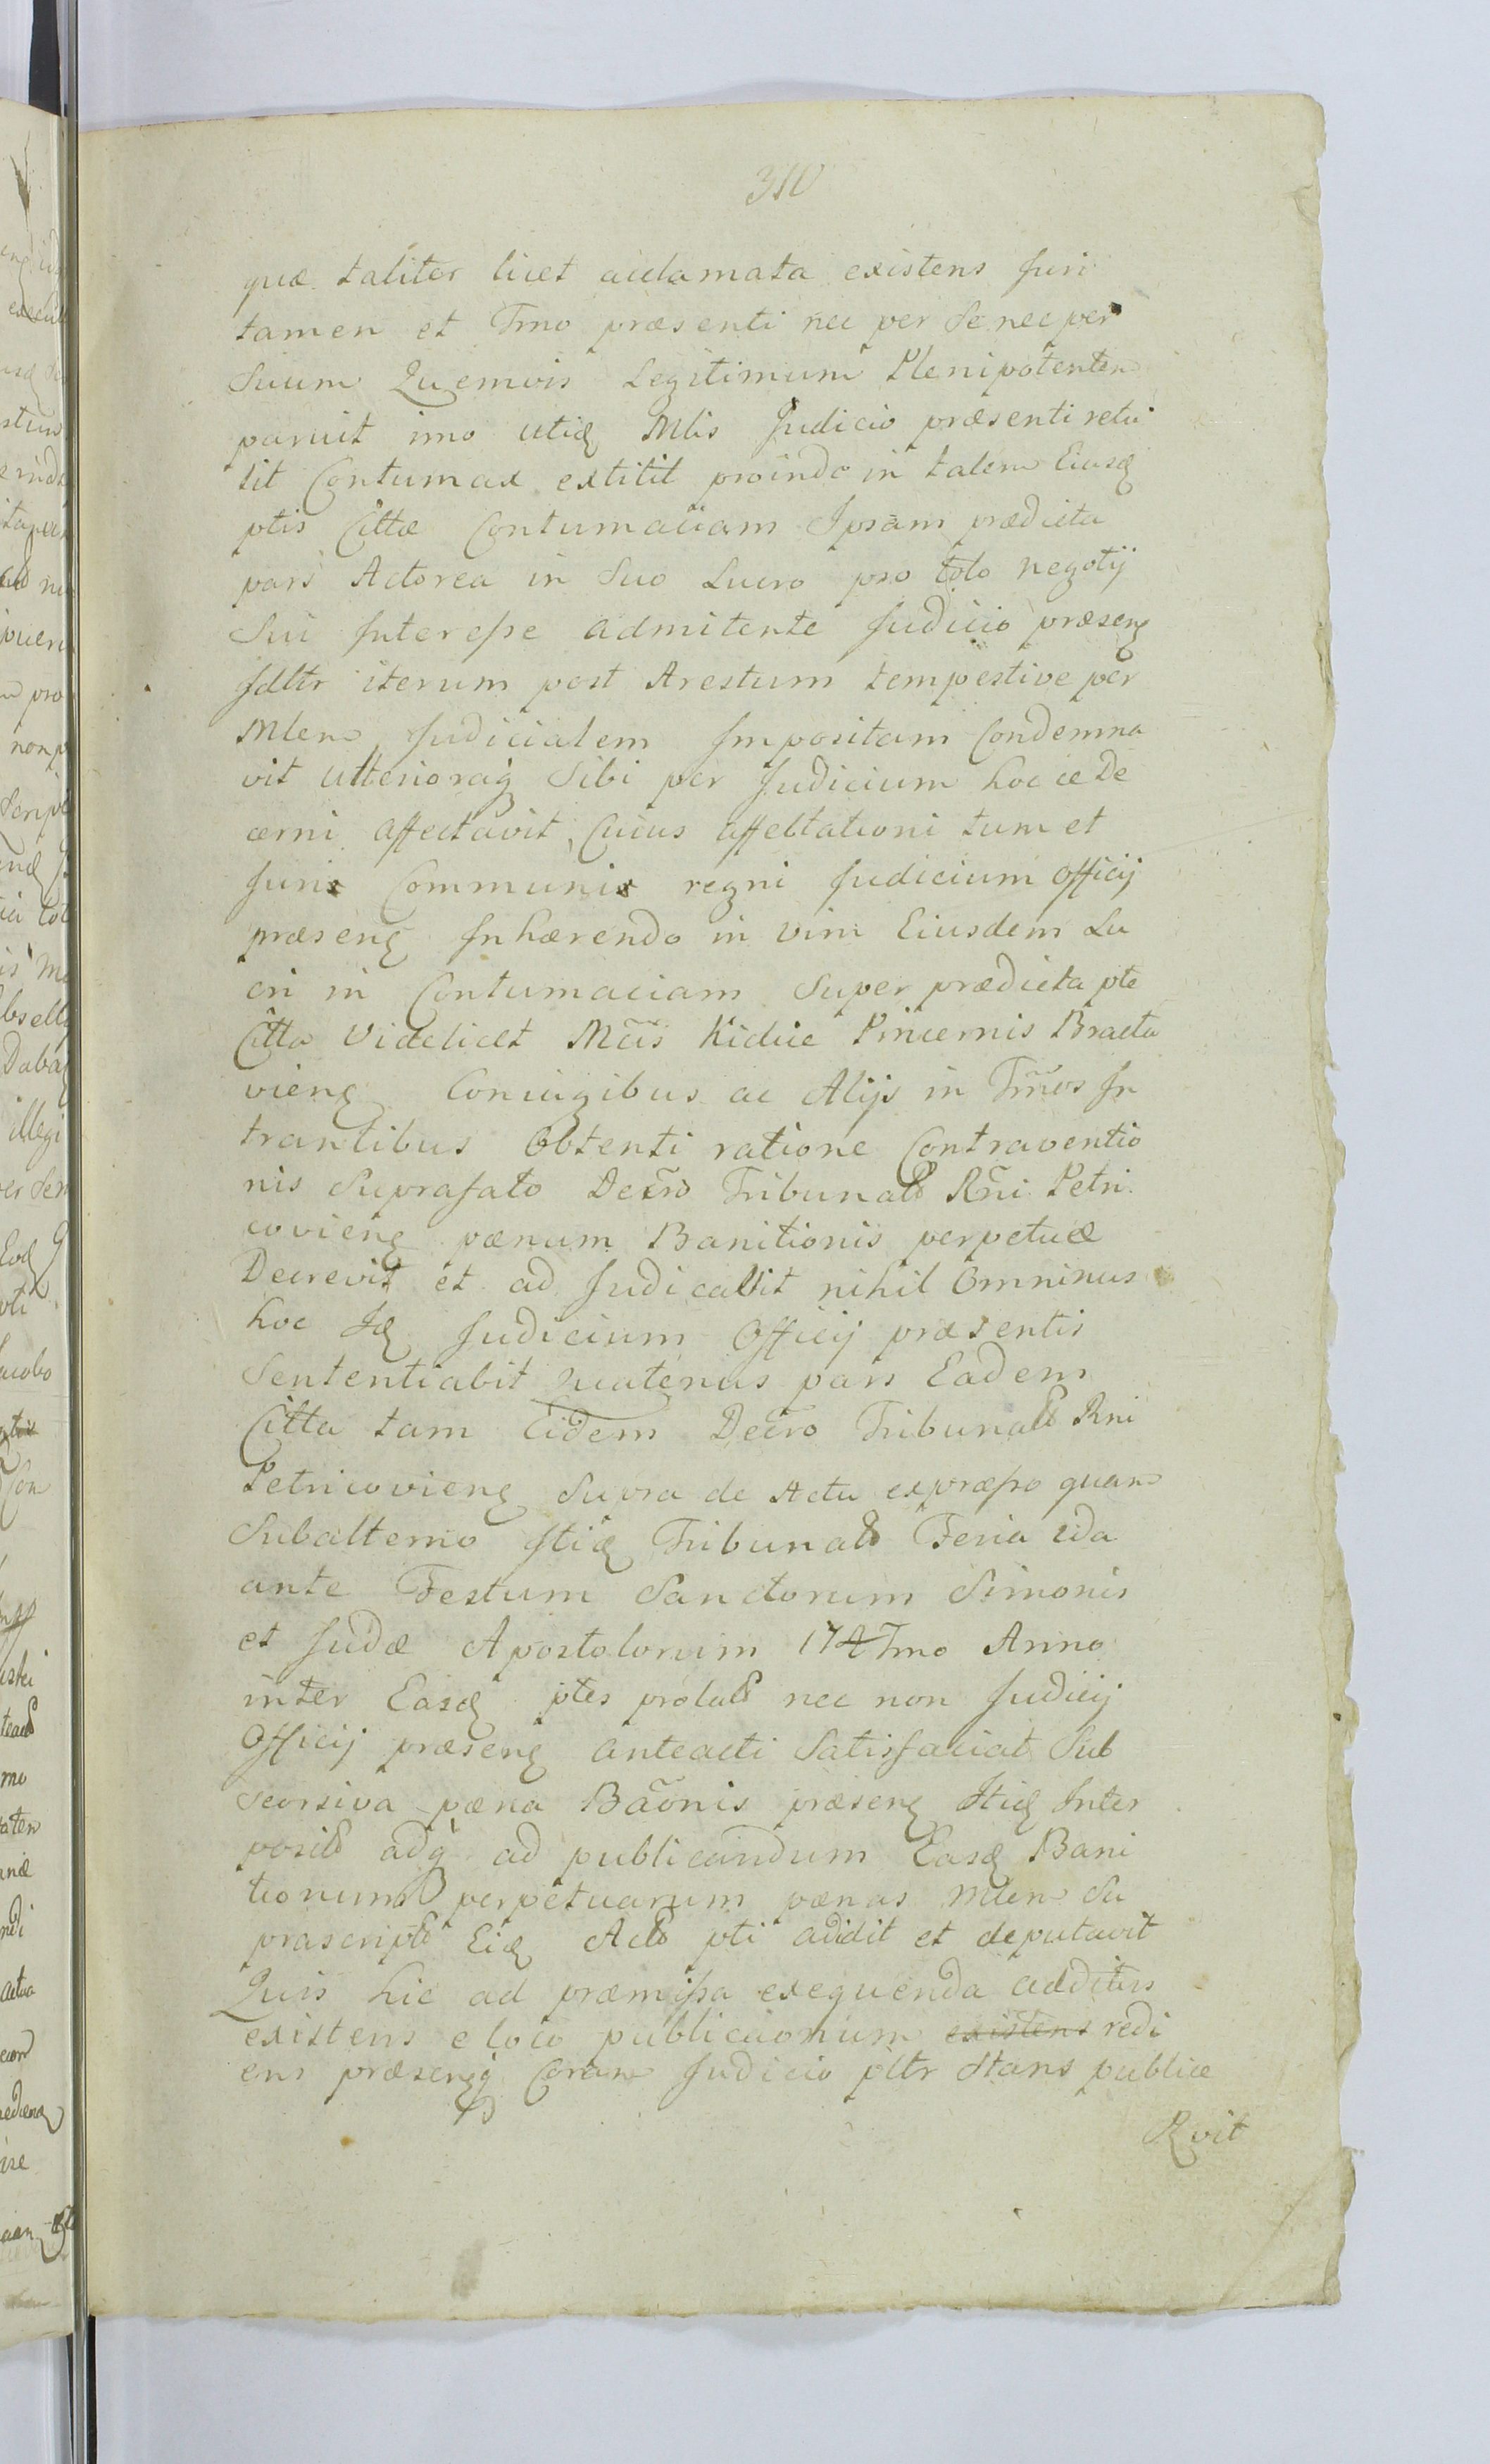 310
quæ taliter licet acclamata existens Juri
tamen et Tmo præsenti nec per se nec per
Suum Quemvis Legitimum Plenipotenten
paruit imo utiq Mlis Judicio præsenti retu
lit Contumax extitit proinde in talem Eiusq
ptis Cittæ Contumaciam Ipsam prædicta
pars Actorea in Suo Lucro pro toto negotij
Sui Interesse admitente Judicio præsenq
Jdltr iterum post Arestum tempestive per
Mlen Judicialem Impositam Condemna
vit ulterioraq Sibi per Judicium hocce De
cerni affectavit, Cuius affectationi tum et
Juris Communis regni Judicium Officij
præsenq Inhærendo in vim Eiusdem Lu
cri in Contumaciam Super prædicta pte
Citta Videlicet Mcis Kiduie Pincernis Bracta
vienq Coniugibus ac Alijs in Tmos In
trantibus Obtenti ratione Contraventio
nis Suprafato Decro Tribunal Rni Petri
covienq pænam Banitionis perpetuæ
Decrevit et ad Judicavit nihil Omninus
hoc Iq Judicium Officij præsentis
Sententiabit quatenus pars Eadem
Citta tam Eidem Decro Tribunal Rni
Petricovienq Supra de Actu expræsso quam
Subalterno Itiq Tribunal Feria 2da
ante Festum Sanctorum Simonis
et Judæ Apostolorum 174Tmo Anno
inter Easq ptes prolat nec non Judicij
Officij præsenq anteacti Satisfaciat Sub
Seorsiva pæna Baonis præsenq Itiq Inter
posit adq ad publicandum Easq Bani
tionum perpetuarum pænas Mlen Su
prascript Eiq Act pti addidit et deputavit
Quis hic ad præmissa exequenda additus
existens e loco publicaonum existens redi
ens præsenq Coram Judicio pltr Stans publice
Rvit